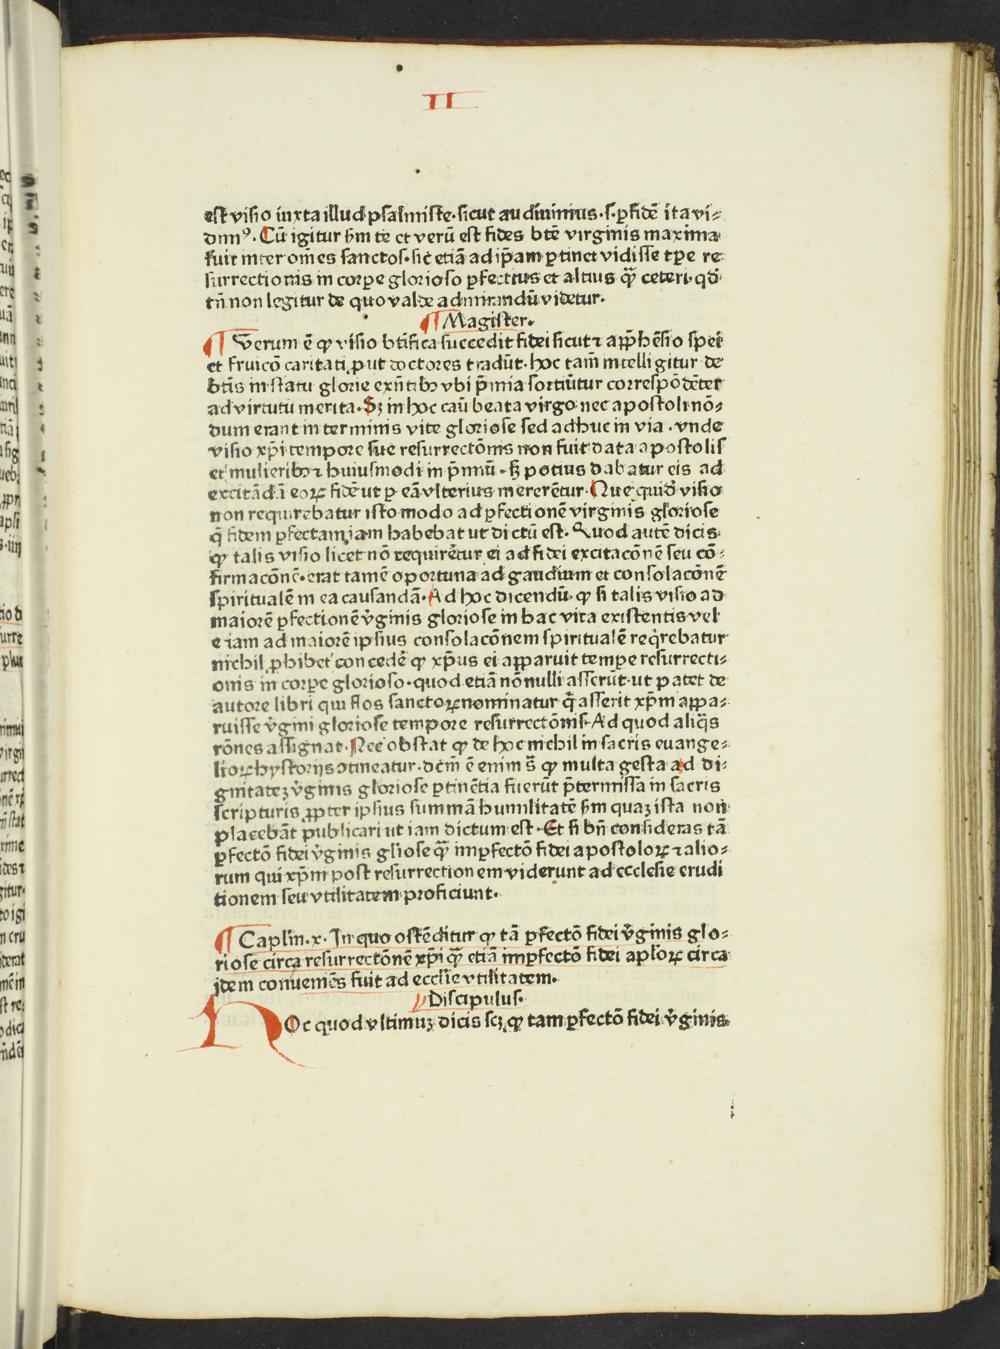 II
est visio iuxta illud psalmiste·sicut audiuimus·s·ꝑfidē ita vi⸗
dimꝰ·Cū igitur ẜm te et verū est fides btē virginis maxima
fuit inter om̄es sanctos·sic etiā ad ip̄am ꝑtinet vidisse tꝑe re
surrectionis in corꝑe glorioso ꝑfectius et altius qͣ̄ ceteri·qd̄
tn̄ non legitur de quo valde admirandū videtur·
¶ Magister·
¶ Verum ē ꝙ visio btīfica succedit fidei sicut ⁊ app̄hēsio spei
et fruicō caritati ꝓut doctores tradūt·hoc tam̄ intelligitur de
btīs in statu glorie exn̄tibꝫ vbi p̄mia sortiūtur correspōdēter
ad virtutū merita·Sꝫ in hoc caū beata virgo nec apostoli nō⸗
dum erant in terminis vite gloriose sed adhuc in via·vnde
visio xp̄i tempore sue resurrectōnis non fuit data apostolis
et mulieribꝫ ⁊ huiusmodi in p̄miū·sꝫ potius dabatur eis ad
excitādā eoꝝ fidē ut ꝑ eā vlterius mererētur·Que quidē visio
non requirebatur isto modo ad ꝑfectionē virginis gloriose
q̄ fidem ꝑfectam iam habebat ut dictū est·Quod autē dicis
ꝙ talis visio licet nō requirētur ei ad fidei excitacōnē seu cō⸗
firmacōnē·erat tamē oportuna ad gaudium et consolacōnē
spiritualē in ea causandā·Ad hoc dicendū·ꝙ si talis visio ad
maiorē ꝑfectionē v̓ginis gloriose in hac vita existentis vel
eciam ad maiorē ipsius consolacōnem spiritualē req̇rebatur
nichil ꝓhibet concedē ꝙ xp̄us ei apparuit tempe resurrecti⸗
onis in corꝑe glorioso·quod etiā nōnulli asserūt·ut patet de
autore libri qui flos sanctoꝝ nominatur q̄ asserit xp̄m appa⸗
ruisse v̓gini gloriose tempore resurrectōnis·Ad quod aliq̄s
rōnes assignat·Nec obstat ꝙ de hoc nichil in sacris euange⸗
lioꝝ hystorijs ↄtineatur·dc̄m ē enim s̄ ꝙ multa gesta ad di⸗
gnitatez v̓ginis gloriose ꝑtinētia fuerūt p̄termissa in sacris
scripturis ꝓpter ipsius summā humilitatē ẜm quaꝫ ista non
placebāt publicari ut iam dictum est·Et si bn̄ consideras tā
ꝑfectō fidei v̓ginis gl̓iose qͣ̄ imꝑfectō fidei apostoloꝝ ⁊ alio⸗
rum qui xp̄m post resurrectionem viderunt ad ecclesie erudi
tionem seu vtilitatem proficiunt·
¶ Caplm̄·x·In quo ostēditur ꝙ tā ꝑfectō fidei v̓ginis glo⸗
riose circa resurrectōnē xp̄i qͣ̄ etiā imꝑfectō fidei apl̓oꝝ circa
idem conueniēs fuit ad eccl̓ie vtilitatem·
Discipulus·
HOc quod vltimuꝫ dicis scꝫ ꝙ tam ꝑfectō fidei v̓ginis